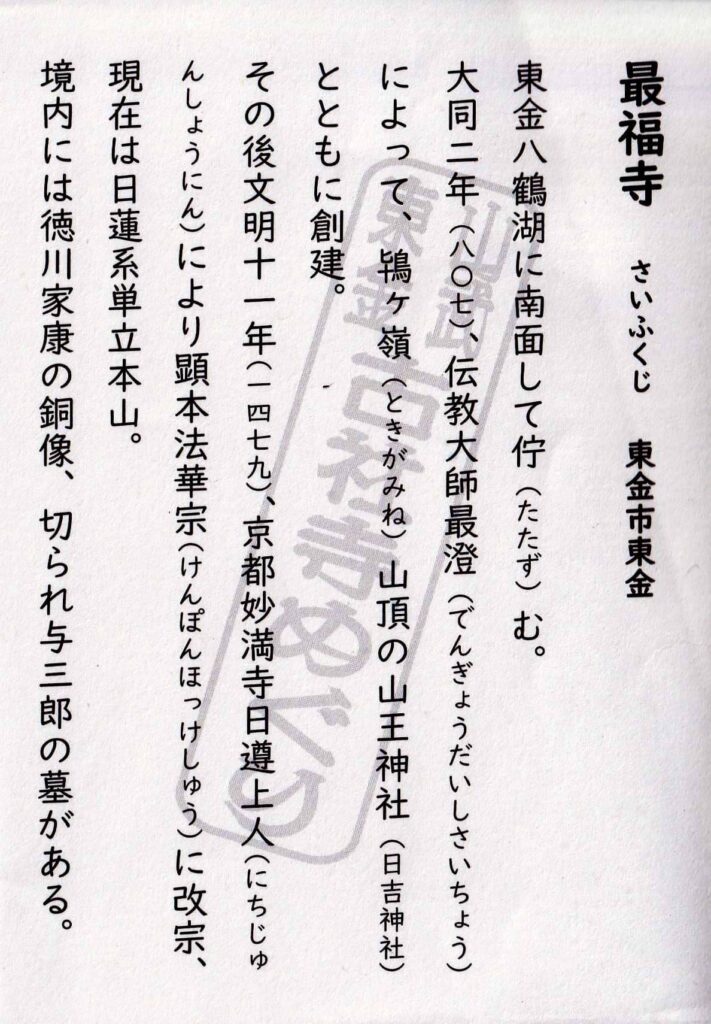 最福寺　さいふくじ　東金市東金
東金八鶴湖に南面して佇（たたず）む。
大同二年（八〇七）、伝教大師最澄（でんぎょうだいしさいちょう）
によって、鴇ヶ嶺（ときがみね）山頂の山王神社（日吉神社）
とともに創建。
その後文明十一年（一四七九）、京都妙満寺日遵上人（にちじゅ
んしょうにん）により顕本法華宗（けんぽんほっけしゅう）に改宗、
現在は日蓮系単立本山。
境内には徳川家康の銅像、切られ与三郎の墓がある。
東金古社寺めぐり